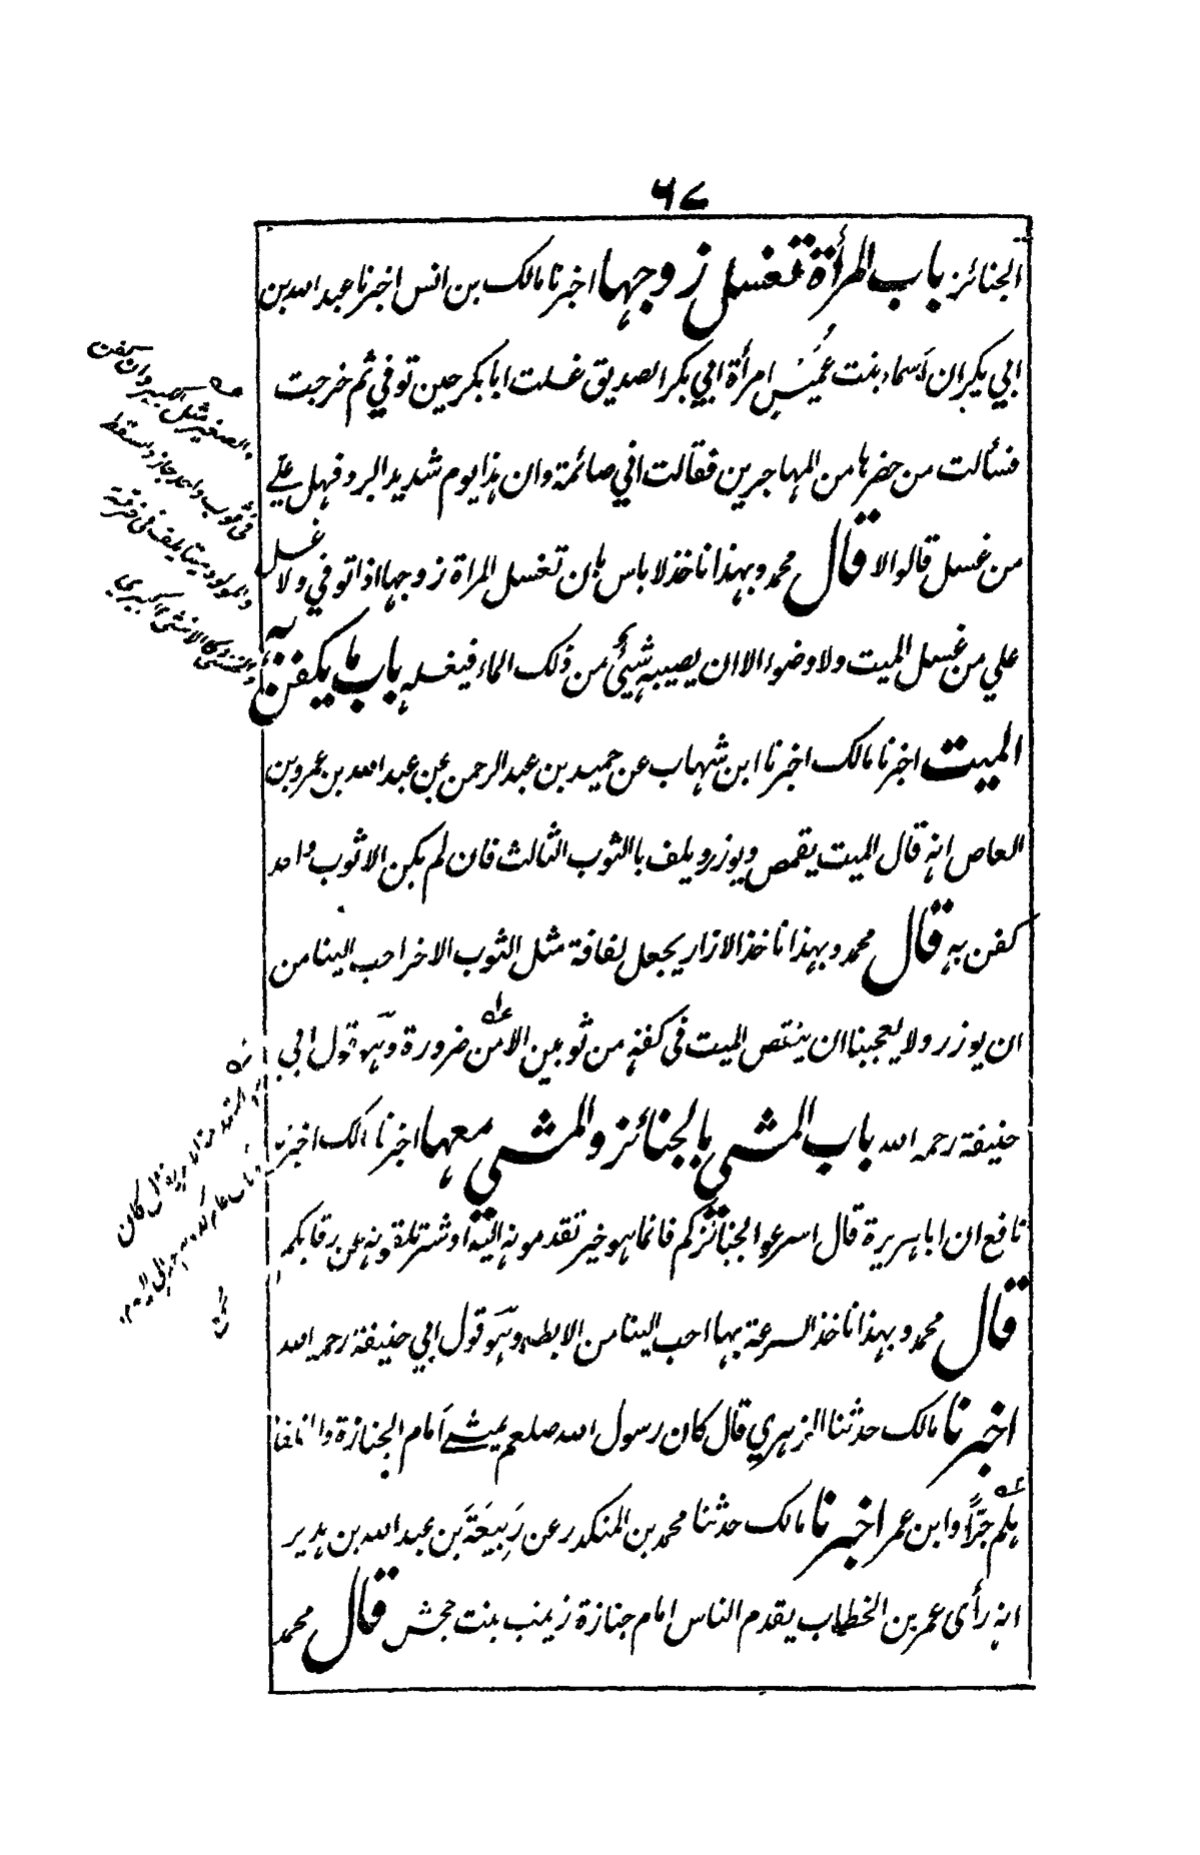 ٦٧
الجنائز باب المرأة تغسل زوجها اخبرنا مالك بن انس اخبرنا عبد الله بن
ابي بكر ان أسماء بنت عُمَيْسٍ امرأة ابي بكر الصديق غسلت ابا بكر حين توفي ثم خرجت
فسألت من حضرها من المهاجرين فقالت اني صائمة وان هذا يوم شديد البرد فهل علي
من غسل قالوا لا قال محمد وبهذا ناخذ لا باس بان تغسل المراة زوجها اذا توفي ولا غسل
علي من غسل الميت ولا وضوء الا ان يصيبه شيئ من ذلك الماء فيغسله باب ما يكفن به
الميت اخبرنا مالك اخبرنا ابن شهاب عن حميد بن عبد الرحمن عن عبد الله بن عمرو بن
العاص انه قال الميت يقمص ويوزر ويلف بالثوب الثالث فان لم يكن الا ثوب واحد
كفن به قال محمد وبهذا ناخذ الازار يجعل لفافة مثل الثوب الاخر احب الينا من
ان يوزر ولا يعجبنا ان ينتقص الميت فى كفنه من ثوبين الا من ضرورة وهو قول ابي
حنيفة رحمه الله باب المشي بالجنائز والمشي معها اخبرنا مالك اخبرنا
نافع ان ابا هريرة قال اسرعوا بجنائزكم فانما هو خير تقدمونه اليه او شر تلقونه عن رقابكم
قال محمد وبهذا ناخذ السرعة بها احب الينا من الابطاء وهو قول ابي حنيفة رحمه الله
اخبرنا مالك حدثنا الزهري قال كان رسول الله صلعم يمشے أمام الجنازة والخلفاء
هلم جرًّا وابن عمر اخبرنا مالك حدثنا محمد بن المنكدر عن رَبِيعَةَ بن عبد الله بن هدير
انه رأى عمر بن الخطاب يقدم الناس امام جنازة زينب بنت جحش قال محمد
والصغير مثل الكبير وان كفن
فى ثوب واحد جاز والسقط
والمولود ميتا يلف فى خرقة
والخنثى كالانثى كبيري